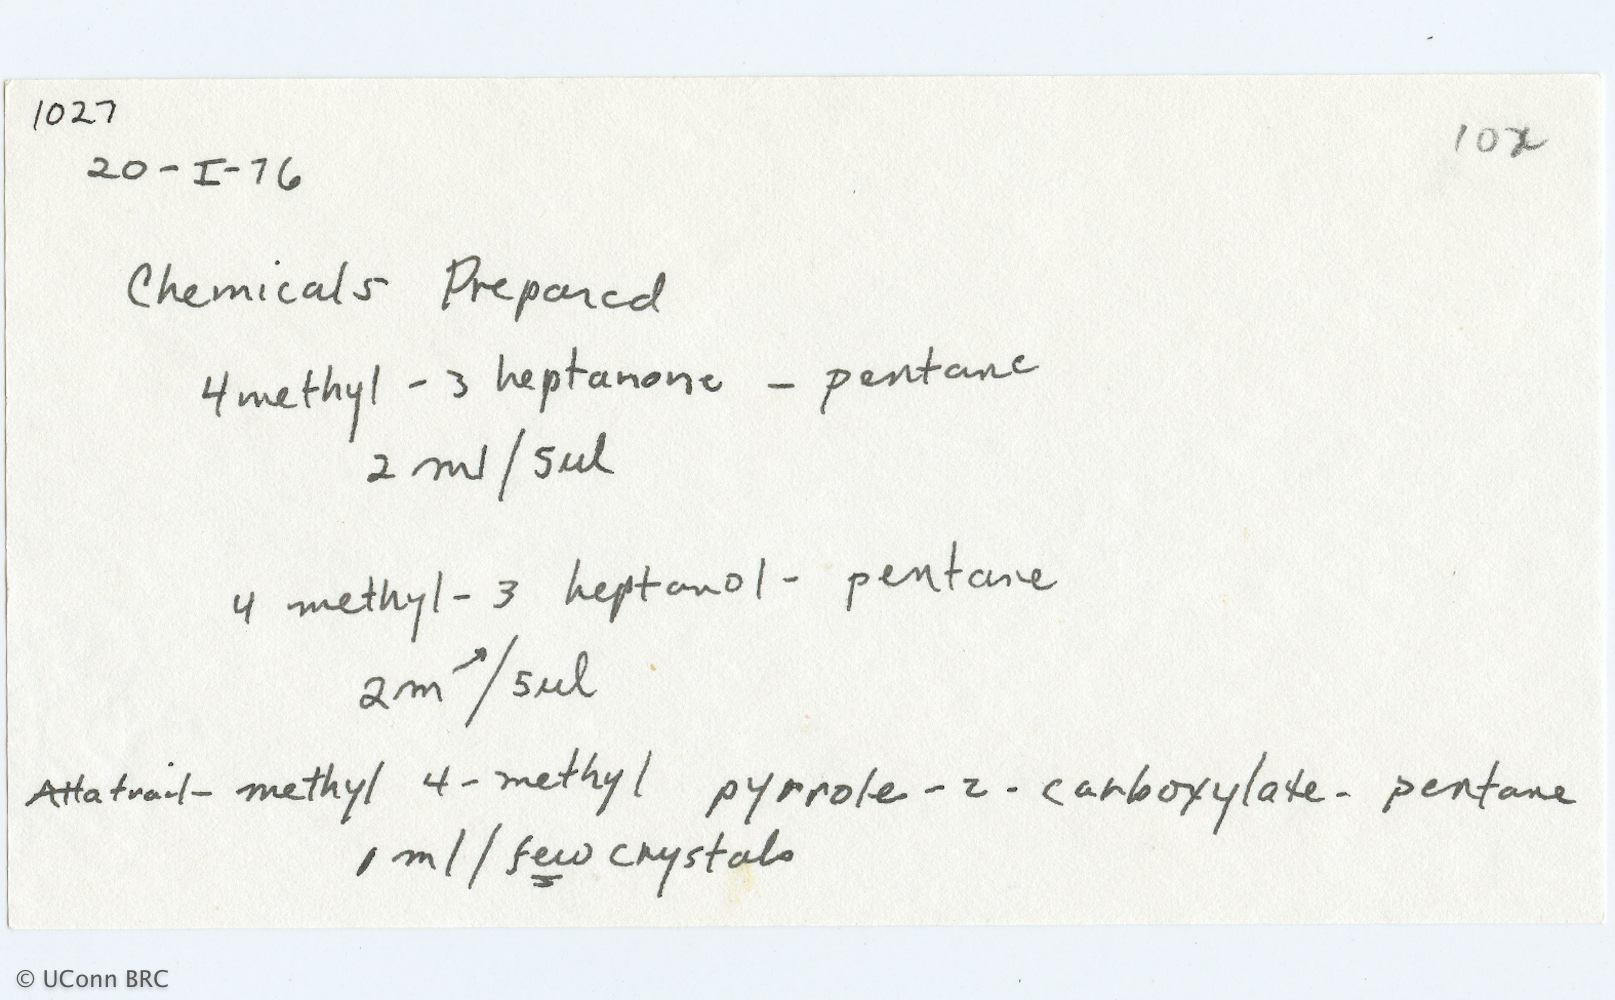 1027
10x
20-I-76
Chemicals Prepared
4 methyl - 3 heptanone - pentane
2 ml / 5ul
4 methyl - 3 heptanol - pentane
2m↗ / 5ul
Atta trail - methyl 4-methyl pyrrole-2-carboxylate - pentane
1 ml / few crystals
© UConn BRC